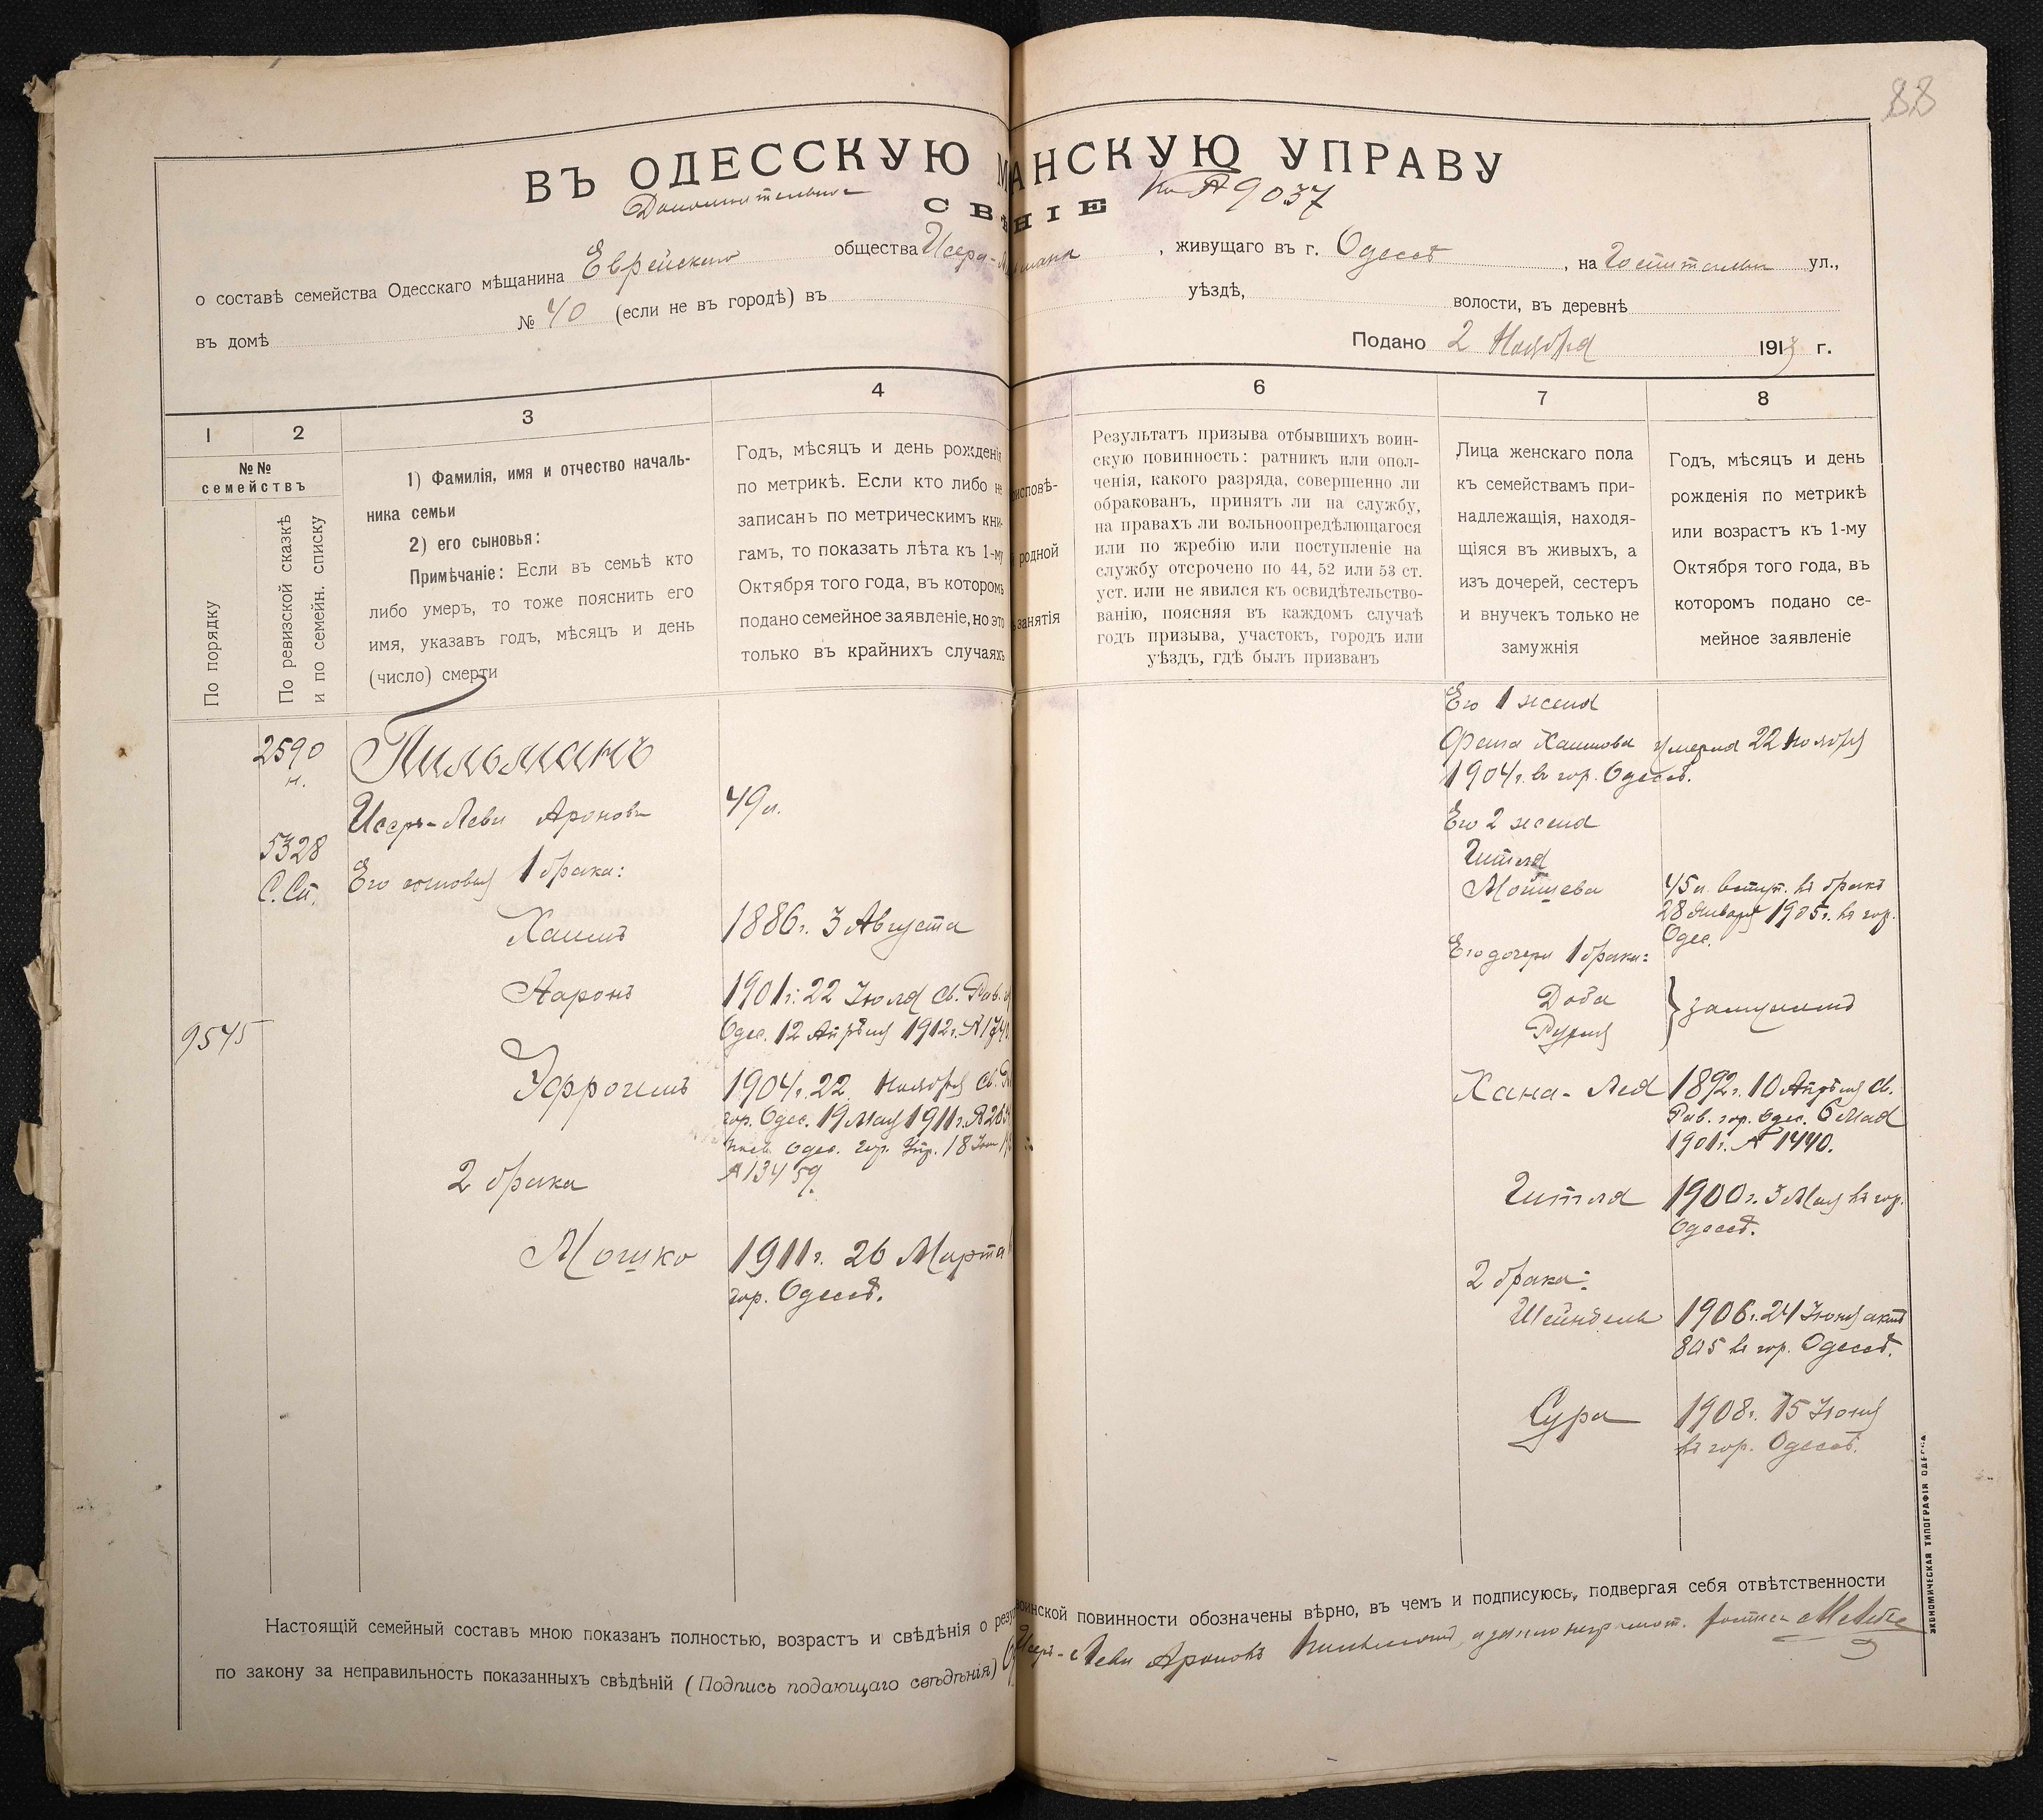 88
ВЪ ОДЕССКУЮ М АНСКУЮ УПРАВУ
Дополнительное СВѢ НІЕ № 9037
о составѣ семейства Одесскаго мѣщанина Еврейскаго общества Исера- , живущаго въ г. Одессѣ , на ул.,
въ домѣ № 40 (если не въ городѣ) въ уѣздѣ, волости, въ деревнѣ
Подано 2 Ноября 1913 г.
1 2 3 4 6 7 8
№№ семействъ
По порядку
По ревизской сказкѣ
и по семейн. списку
1) Фамилія, имя и отчество началь-
ника семьи
2) его сыновья:
Примѣчаніе: Если въ семьѣ кто
либо умеръ, то тоже пояснить его
имя, указавъ годъ, мѣсяцъ и день
(число) смерти
Годъ, мѣсяцъ и день рожденія
по метрикѣ. Если кто либо не
записанъ по метрическимъ кни-
гамъ, то показать лѣта къ 1-му
Октября того года, въ которомъ
подано семейное заявленіе, но это
только въ крайнихъ случаяхъ
исповѣ-
родной
занятія
Результатъ призыва отбывшихъ воин-
скую повинность: ратникъ или опол-
ченія, какого разряда, совершенно ли
обракованъ, принятъ ли на службу,
на правахъ ли вольноопредѣлющагося
или по жребію или поступленіе на
службу отсрочено по 44, 52 или 53 ст.
уст. или не явился къ освидѣтельство-
ванію, поясняя въ каждомъ случаѣ
годъ призыва, участокъ, городъ или
уѣздъ, гдѣ былъ призванъ
Лица женскаго пола
къ семействамъ при-
надлежащія, находя-
щіяся въ живыхъ, а
изъ дочерей, сестеръ
и внучекъ только не
замужнія
Годъ, мѣсяцъ и день
рожденія по метрикѣ
или возрастъ къ 1-му
Октября того года, въ
которомъ подано се-
мейное заявленіе
2590
н.
Пильманъ
Исеръ-Леви Ароновъ 49 л.
5328
С. Сп.
Его сыновья 1 брака:
Хаимъ 1886 г. 3 Августа
Ааронъ 1901 г. 22 Іюля св. Рав.
Одес. 12 Апрѣля 1912 г. №
9545
Эфроимъ 1904 г. 22 Ноября св.
гор. Одес. 19 Мая 1911 г. №
Одес. гор. Упр. 18
№ 13459.
2 брака
Мошко 1911 г. 26 Марта
гор. Одессѣ.
Его 1 жена
Фейга Хаимова умерла 22 Ноября
1904 г. въ гор. Одессѣ.
Его 2 жена
Гитля
Мошева 45 л. вступ. въ бракъ
28 Января 1905 г. въ гор.
Одес.
Его дочери 1 брака:
Доба
Рухля } замужемъ
Хана-Лея 1892 г. 10 Апрѣля св.
Рав. гор. Одес. 6 Мая
1901 г. № 1440.
Гитля 1900 г. 3 Мая въ гор.
Одессѣ.
2 брака:
Шейндель 1906 г. 24 Іюня актъ
805 въ гор. Одессѣ.
Сура 1908 г. 15 Іюня
въ гор. Одессѣ.
Настоящій семейный составъ мною показанъ полностью, возрастъ и свѣдѣнія о резу воинской повинности обозначены вѣрно, въ чемъ и подписуюсь, подвергая себя отвѣтственности
по закону за неправильность показанныхъ свѣдѣній (Подпись подающаго свѣдѣнія) Исеръ-Леви Ароновъ Пильманъ, а за него неграмот.
ЭКОНОМИЧЕСКАЯ ТИПОГРАФІЯ ОДЕССА